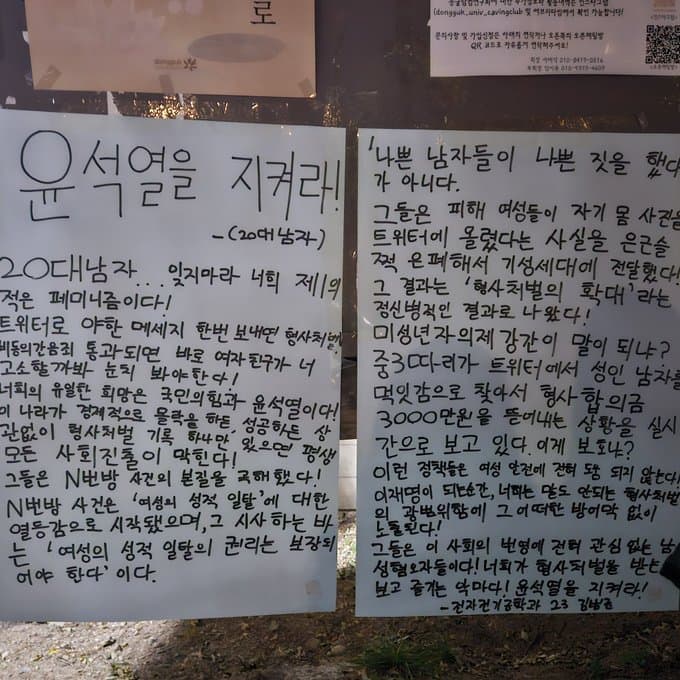 로
(dongguk_univ_cavingclub 및 에브리타임에서 확인 가능합니다!
문의사항 및 가입신청은 아래의 연락처나 오픈톡의 오픈채팅방
QR 코드로 자유롭게 연락해주세요!
윤석열을 지켜라!
-(20대남자)
20대남자... 잊지마라 너희 제1의
적은 페미니즘이다!
트위터로 야한 메세지 한번 보내면 형사처벌,
비동의간음죄 통과되면 바로 여자친구가 너
고소할까봐 눈치 봐야한다!
너희의 유일한 희망은 국민의힘과 윤석열이다!
이 나라가 경제적으로 몰락을 하든 성공하든 상
관없이 형사처벌 기록 하나만 있으면 평생
모든 사회진출이 막힌다!
그들은 N번방 사건의 본질을 곡해했다!
N번방 사건은 '여성의 성적 일탈'에 대한
열등감으로 시작됐으며, 그 시사하는 바
는 '여성의 성적 일탈의 권리는 보장되
어야 한다'이다.
'나쁜 남자들이 나쁜 짓을 했다
가 아니다.
그들은 피해 여성들이 자기 몸 사진을
트위터에 올렸다는 사실을 은근슬
쩍 은폐해서 기성세대에 전달했다!
그 결과는 '형사처벌의 확대'라는
정신병적인 결과로 나왔다!
미성년자의제강간이 말이 되냐?
중3따리가 트위터에서 성인 남자를
먹잇감으로 찾아서 형사 합의금
3000만원을 뜯어내는 상황을 실시
간으로 보고 있다. 이게 보호냐?
이런 정책들은 여성 안전에 전혀 도움 되지 않는다!
이재명이 되는순간, 너희는 말도 안되는 형사처벌
의 광범위함에 그 어떠한 방어막 없이
노출된다!
그들은 이 사회의 번영에 전혀 관심 없는 남
성혐오자들이다! 너희가 형사처벌을 받는
보고 즐기는 악마다! 윤석열을 지켜라!
-전자전기공학과 23